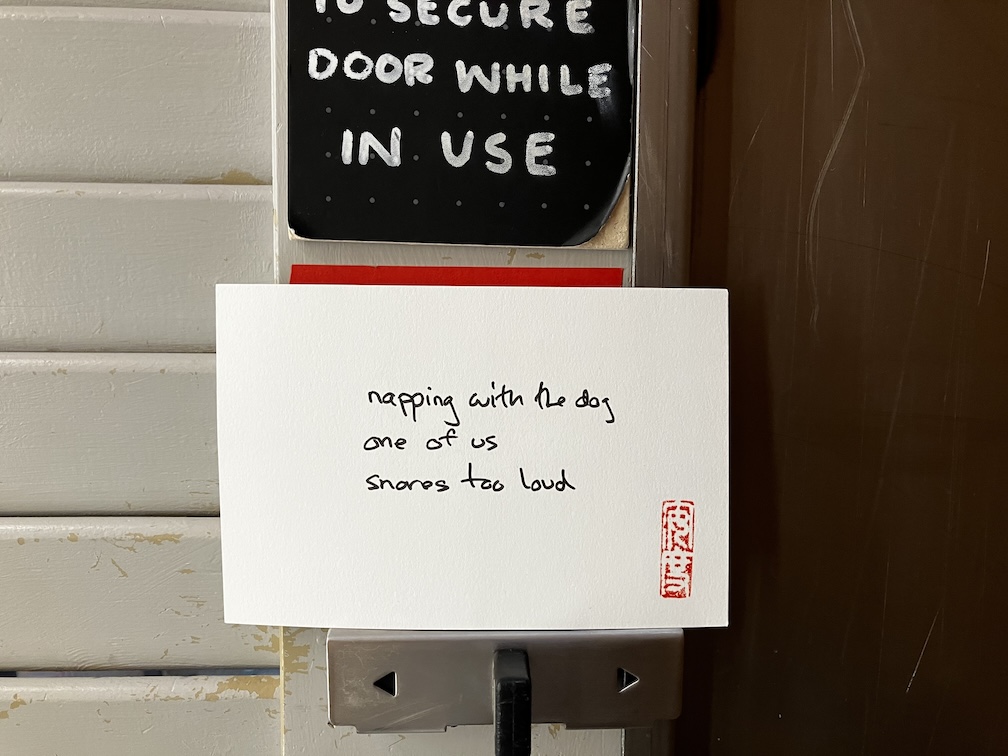 TO SECURE
DOOR WHILE
IN USE
napping with the dog
one of us
snores too loud